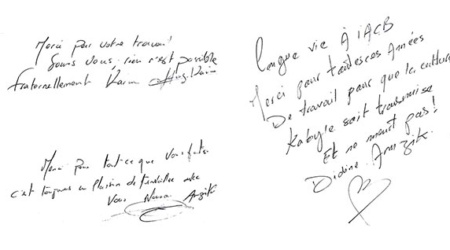 Merci pour votre travail
Sans vous, rien n'est possible
fraternellement Karim
Merci pour tout ce que vous faites
c'est toujours un plaisir de travailler avec
Vous Anzita
Longue vie À l'ACB
Merci pour toutes ces Années
De travail pour que la culture
Kabyle soit transmise
Et ne meurt pas!
Didine